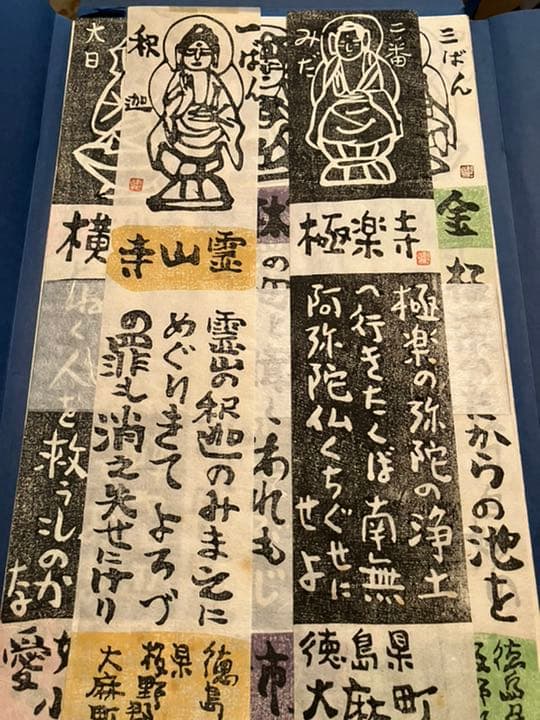 一ばん
釈迦
霊山寺
霊山の釈迦のみまえに
めぐりきて よろづ
の罪も消え失せにけり
徳島
県板野郡
大麻町
二番
みだ
極楽寺
極楽の弥陀の浄土
へ行きたくば南無
阿弥陀仏くちぐせに
せよ
徳島県
大麻町
三ばん
金
からの池を
徳島
大日
横
く人を救う
な
愛
われも
市